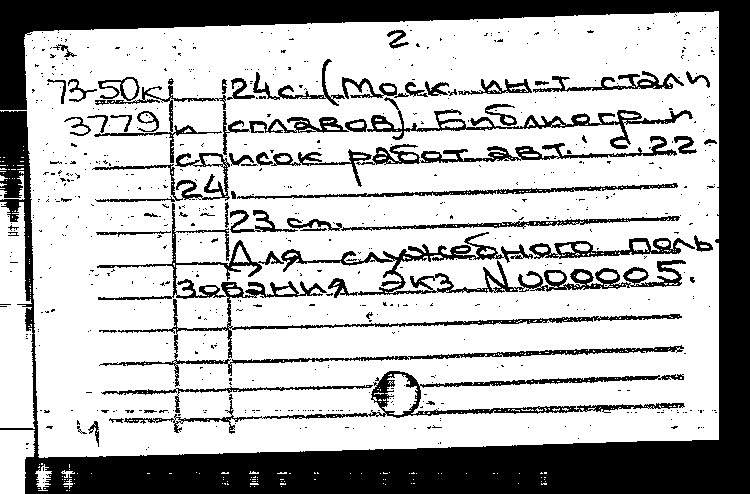 2.
73-50к 24с. (Моск. ин-т стали
3779 и сплавов). Библиогр. и
список работ авт.: с. 22-
24.
23 см.
Для служебного поль-
зования Экз. N000005.
Ч